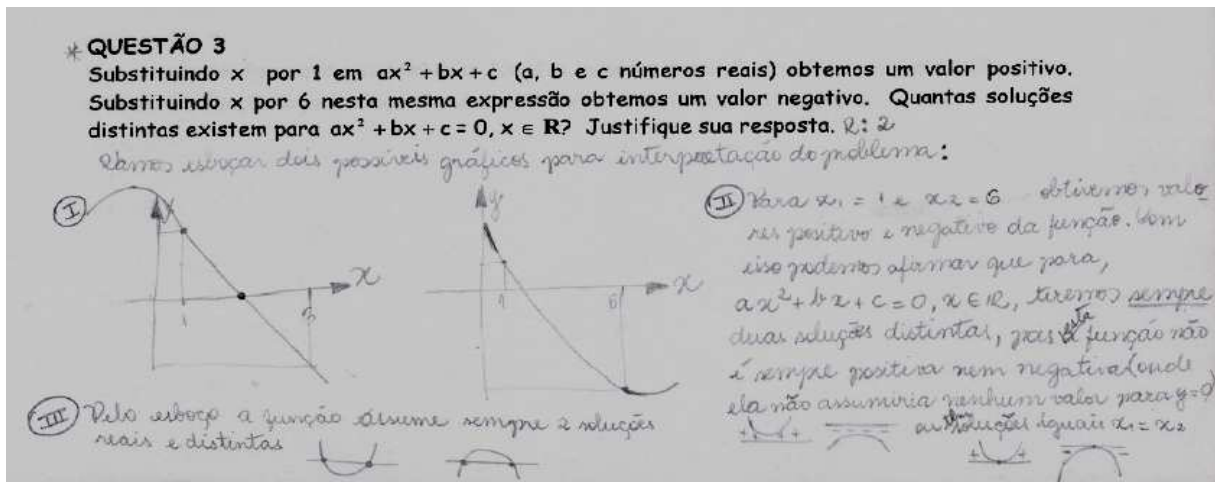 * QUESTÃO 3
Substituindo x por 1 em ax² + bx + c (a, b e c números reais) obtemos um valor positivo.
Substituindo x por 6 nesta mesma expressão obtemos um valor negativo. Quantas soluções
distintas existem para ax² + bx + c = 0, x ∈ R? Justifique sua resposta. R: 2
Vamos esboçar dois possíveis gráficos para interpretação do problema:
I
y
x
1
y
x
1
6
II Para x₁ = 1 e x₂ = 6 obtivemos valo
res positivo e negativo da função. Com
isso podemos afirmar que para,
ax² + bx + c = 0, x ∈ R, teremos sempre
duas soluções distintas, pois esta função não
é sempre positiva nem negativa (onde
ela não assumiria nenhum valor para y=0)
ou soluções iguais x₁ = x₂
III Pelo esboço a função assume sempre 2 soluções
reais e distintas